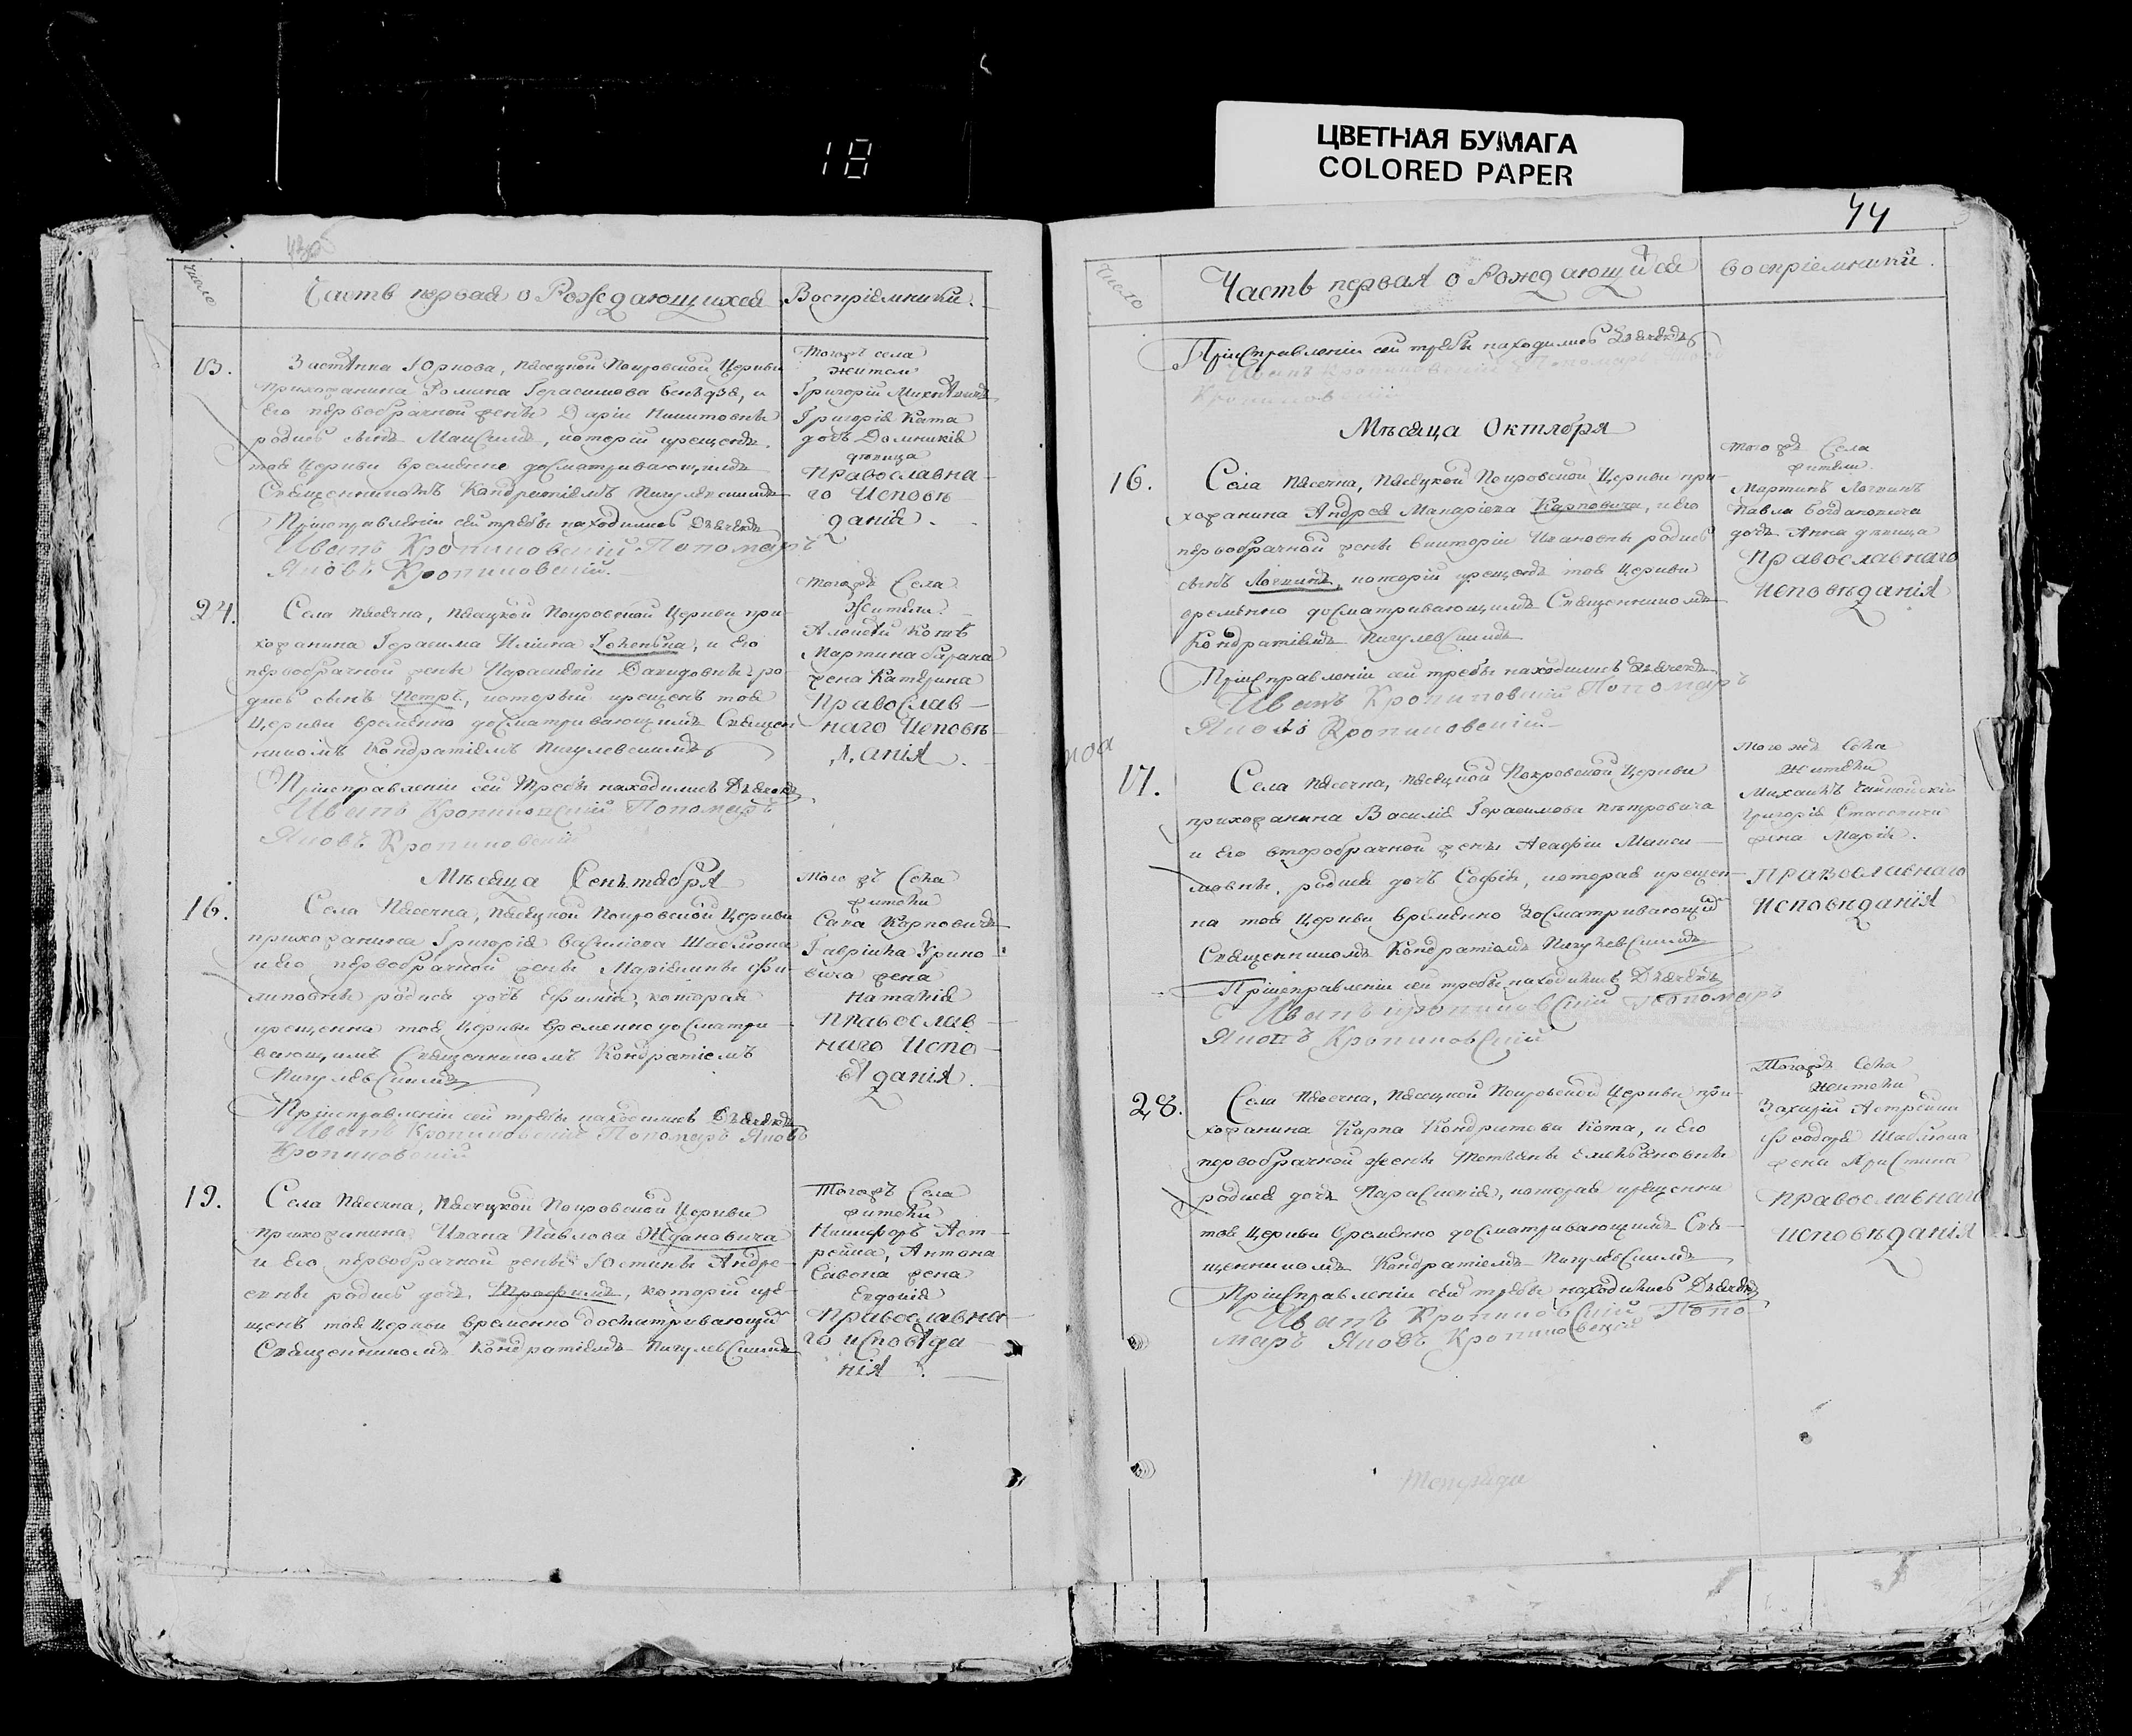 18
ЦВЕТНАЯ БУМАГА
COLORED PAPER
44
Число
Часть первая о Рождающихся
Восприемники.
13.
Застѣнка Юркова, Пасецкой Покровской Церкви
прихожанина Романа Герасимова и
Его первобрачной жены Дарiи Никитовны
родись сынъ Максимъ, которiй крещенъ
тоя Церкви временно досматривающимъ
Священникомъ Кондратiемъ Пигулевскимъ
При исправленiи сей требы находились Дьячокъ
Иванъ Кропиновскiй Пономаръ
Яковъ Кропиновскiй.
Тогожъ села
жители
Григорiй
Григорiя Ката
дочь Домникiя
дѣвица
Православна-
го Исповѣ-
данiя.
24.
Села Пасечна, Пасецкой Покровской Церкви при-
хожанина Герасима Илiина и Его
первобрачной жены Параскевiи Давидовны ро-
дись сынъ Петръ, который крещенъ тоя
Церкви временно досматривающимъ Священ-
никомъ Кондратiемъ Пигулевскимъ
При исправленiи сей требы находились Дьячокъ
Иванъ Кропиновскiй Пономаръ
Яковъ Кропиновскiй
Тогожъ Села
Жители
Алексѣй Котъ
Мартина Барана
жена Катерина
Православ-
наго Исповѣ-
данiя.
Мѣсяца Сентября
16.
Села Пасечна, Пасецкой Покровской Церкви
прихожанина Григорiя Василiева Шаблюка
и Его первобрачной жены Марiянны Фи-
липовны родися дочь Ефимiя, которая
крещенна тоя Церкви временно досматри-
вающимъ Священникомъ Кондратiемъ
Пигулевскимъ
При исправленiи сей требы находились Дьячокъ
Иванъ Кропиновскiй Пономаръ Яковъ
Кропиновскiй
Того жъ Села
жители
Сава Карповичъ
Гаврiила
жена
Наталiя
Православ-
наго Испо-
вѣданiя.
19.
Села Пасечна, Пасецкой Покровской Церкви
прихожанина Ивана Павлова Ждановича
и Его первобрачной жены Юстины Андре-
евны родись дочь Трофимъ, которiй кре-
щенъ тоя Церкви временно досматривающимъ
Священникомъ Кондратiемъ Пигулевскимъ
Тогожъ Села
жители
Никифоръ Аст-
рейка, Антона
Савона жена
Евдокiя
Православна-
го исповѣда-
нiя.
Число
Часть первая о Рождающийся
восприемники.
При исправленiи сей требы находились Дьячокъ
Иванъ Кропиновскiй Пономаръ
Кропиновскiй
Мѣсяца Октября
16.
Села Пасечна, Пасецкой Покровской Церкви при-
хожанина Андрея Макарiева Карповича, и Его
первобрачной жены Викторiи Ивановны родись
сынъ Логинъ, которiй крещенъ тоя Церкви
временно досматривающимъ Священникомъ
Кондратiемъ Пигулевскимъ
При исправленiи сей требы находились Дьячокъ
Иванъ Кропиновскiй Пономаръ
Яковъ Кропиновскiй
Того жъ Села
жители.
Мартинъ
Павла Богдановича
дочь Анна дѣвица
Православнаго
исповѣданiя
17.
Села Пасечна, Пасецкой Покровской Церкви
прихожанина Василiя Герасимова Петровича
и Его второбрачной жены Агафiи Макси-
мовны, родися дочь Софiя, которая крещен-
на тоя Церкви временно досматривающий
Священникомъ Кондратiемъ Пигулевскимъ
При исправленiи сей требы находились Дьячокъ
Иванъ Кропиновскiй Пономаръ
Яковъ Кропиновскiй
Того жъ Села
жители
Михаилъ
Григорiя
жена Марiя.
Православнаго
Исповѣданiя
28.
Села Пасечна, Пасецкой Покровской Церкви при-
хожанина Карпа Кондратова Кота, и Его
первобрачной жены Татiяны Емельяновны
родися дочь Параскевiя, которая крещенна
тоя Церкви временно досматривающимъ Свя-
щенникомъ Кондратiемъ Пигулевскимъ
При исправленiи сей требы находились Дьячокъ
Иванъ Кропиновскiй Поно-
маръ Яковъ Кропиновскiй
Тогожъ Села
жители
Захарiй Астрейка
Феодора Шаблюка
жена Христина
Православнаго
исповѣданiя